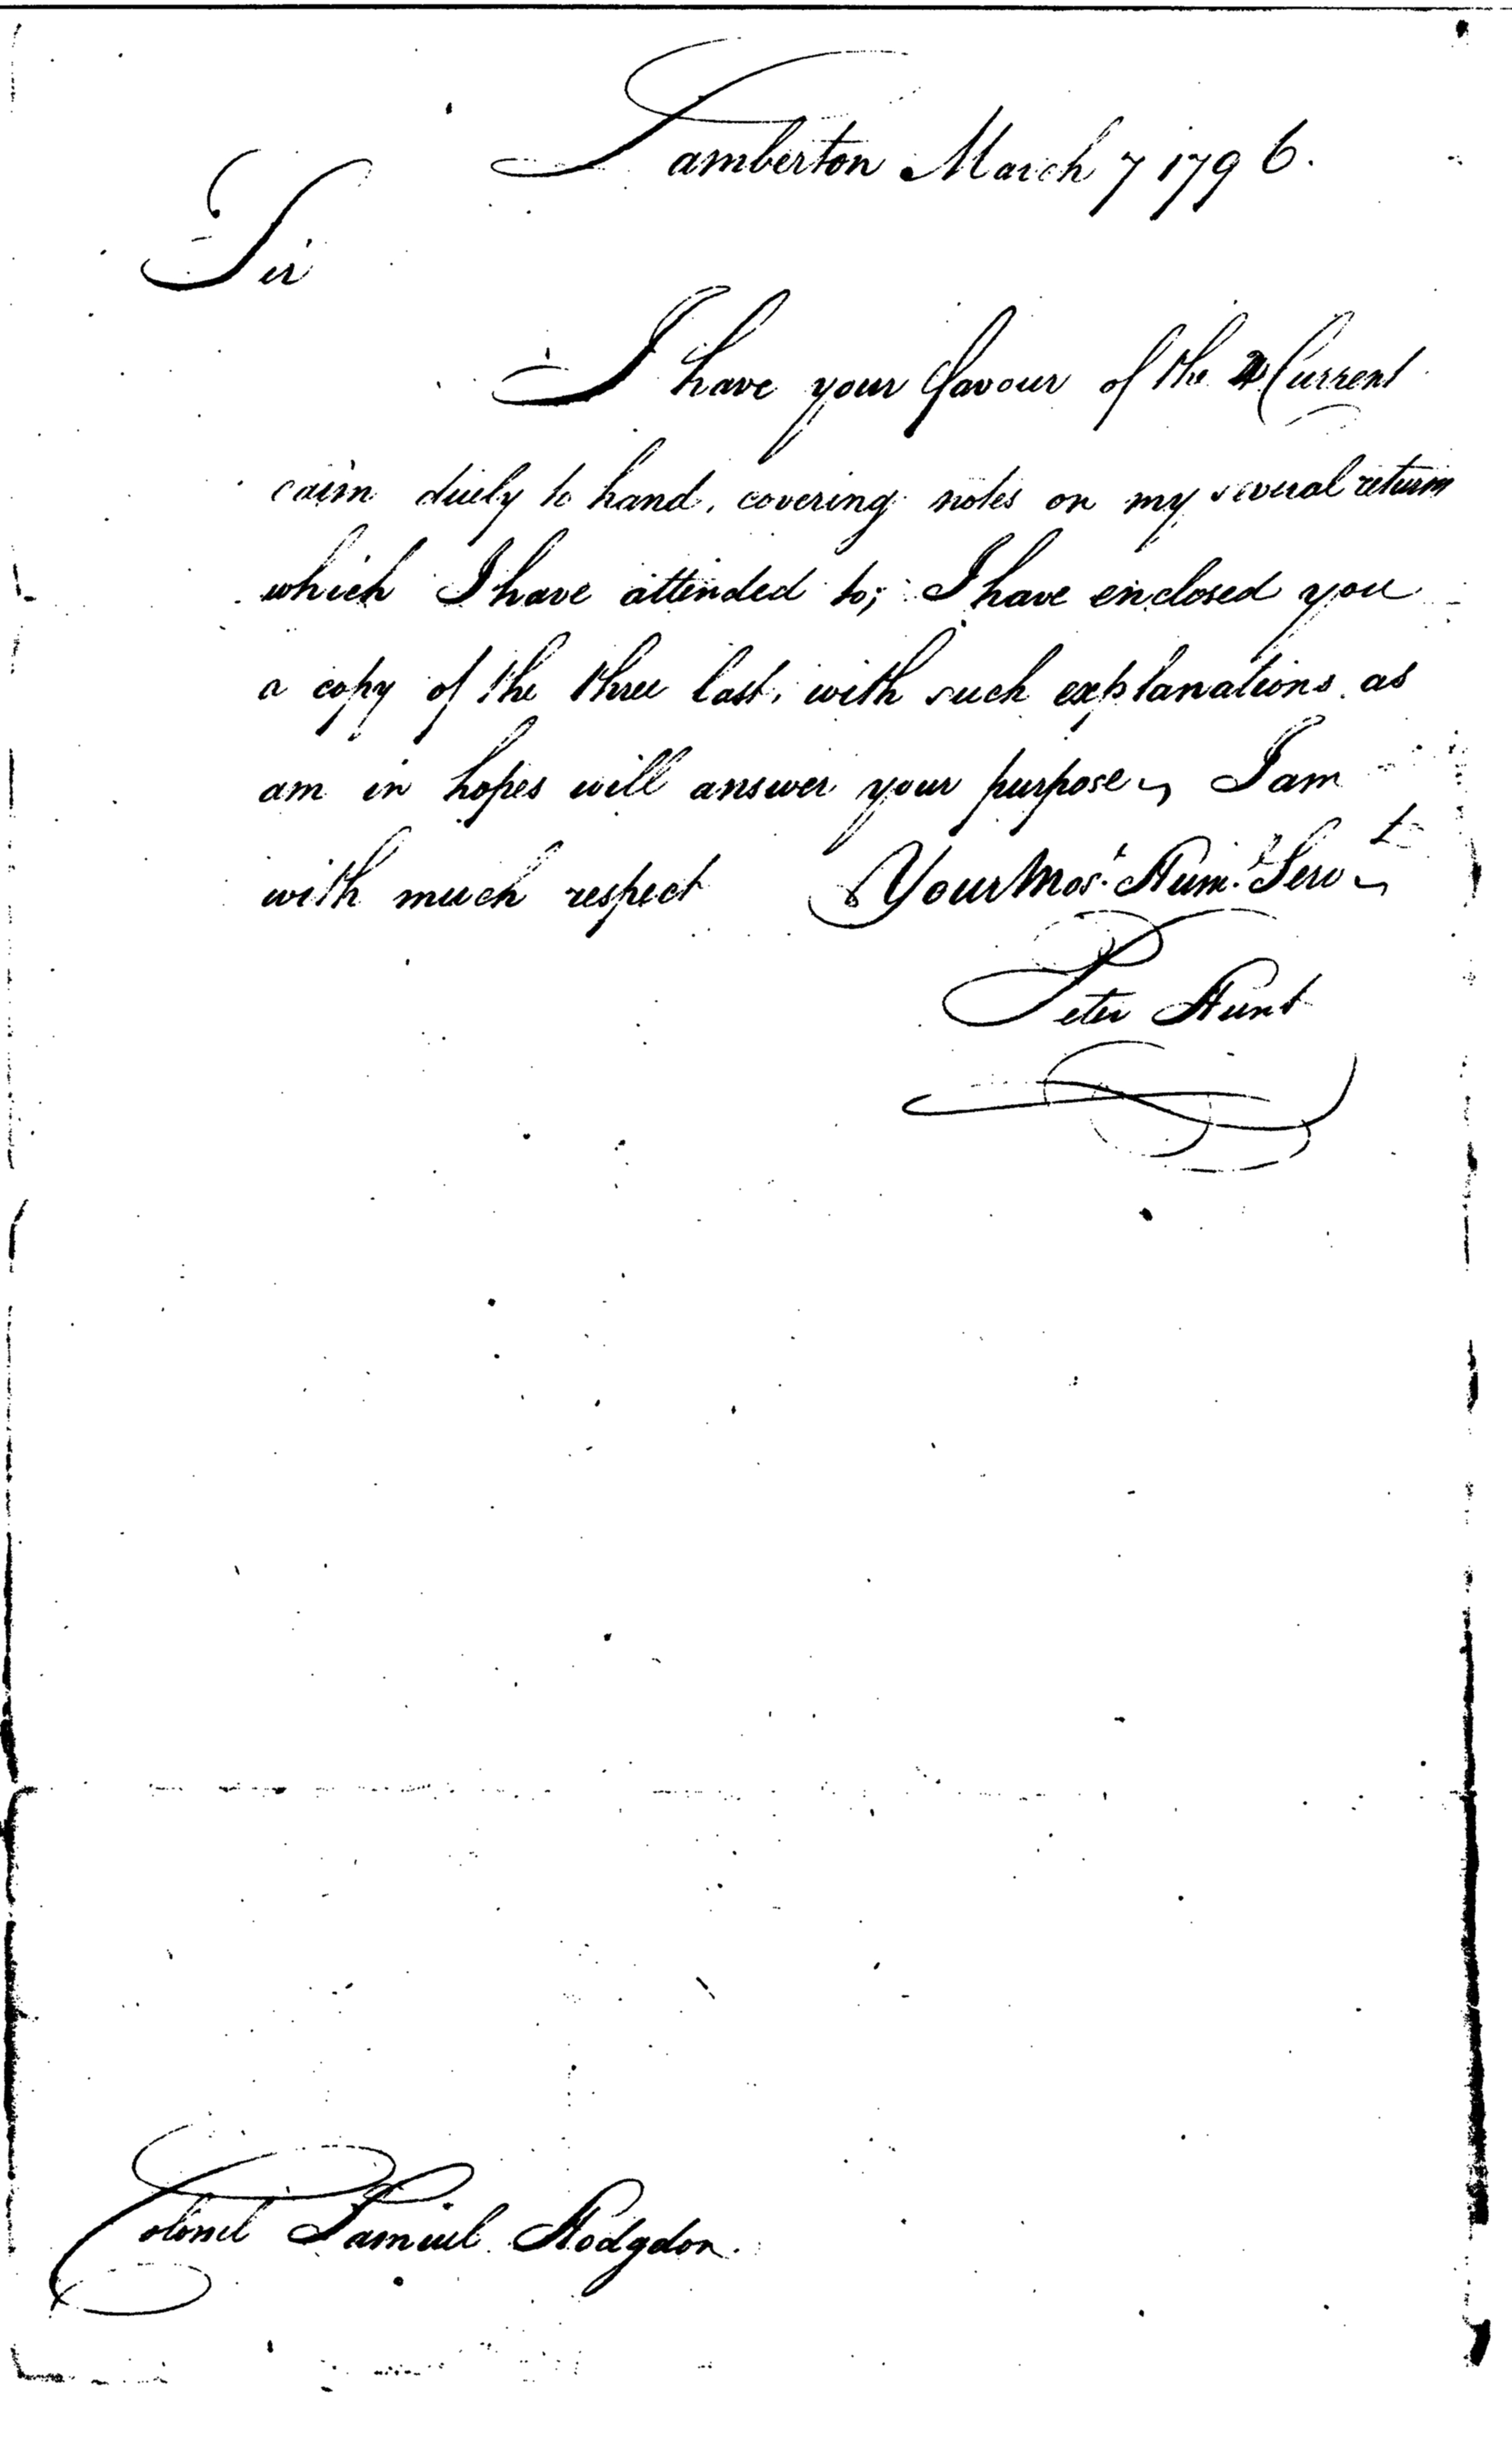 Lamberton March 7 1796.
Sir
I have your favour of the 4 Current
caim duely to hand, covering notes on my several return
which I have attended to; I have enclosed you
a copy of the three last, with such explanations as
am in hopes will answer your purpose I am
with much respect Your Mos.t Hum.l Servt
Peter Hunt
Colonel Samuel Hodgdon.